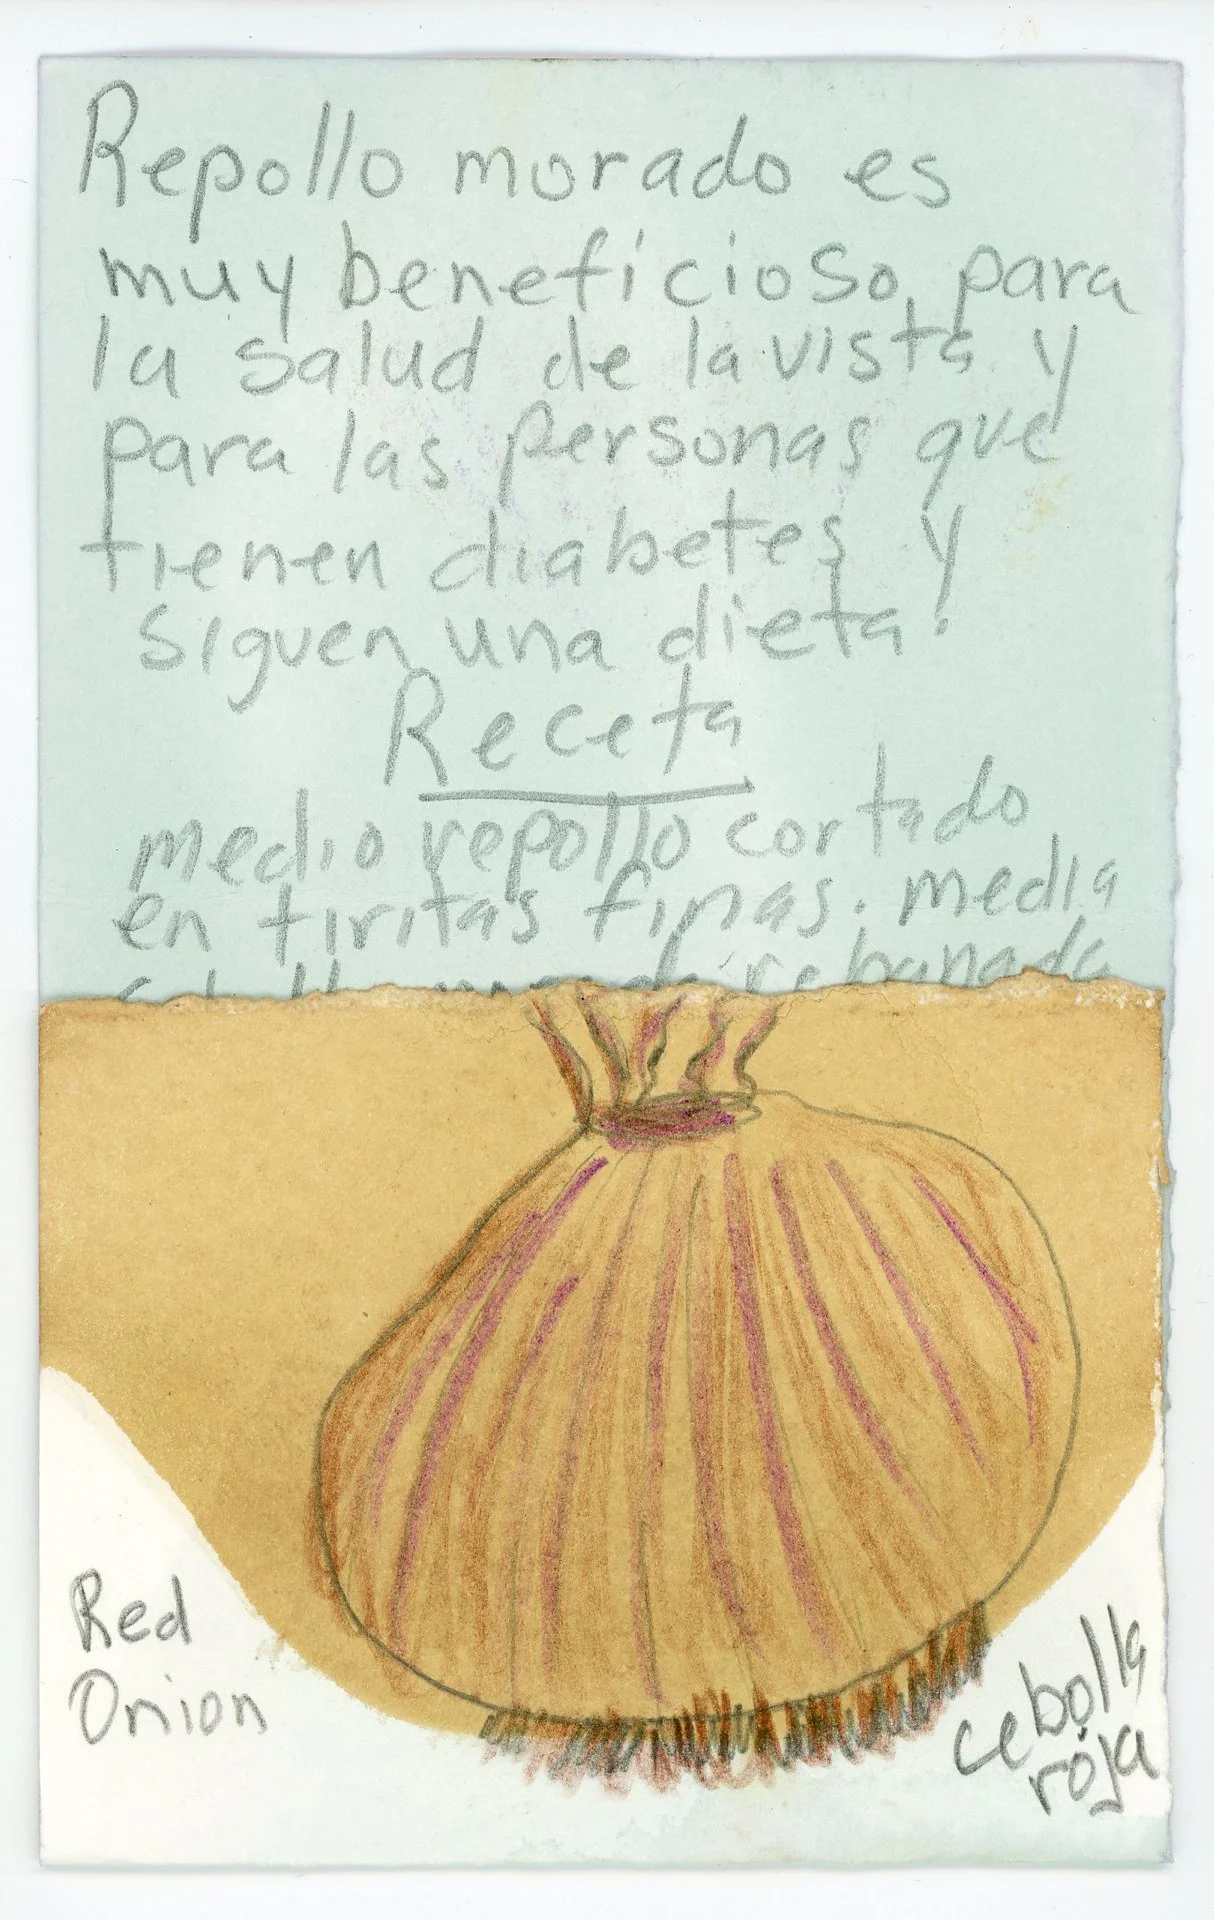 Repollo morado es
muy beneficioso para
la salud de la vista y
para las personas que
tienen diabetes y
siguen una dieta.
Receta
medio repollo cortado
en tiritas finas. media
rebanada
Red
Onion
cebolla
roja